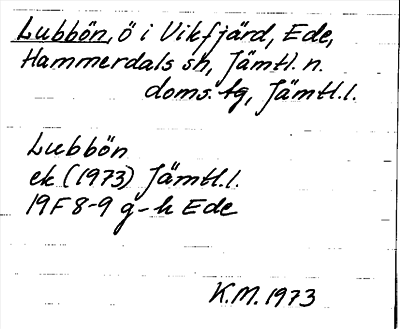 Lubbön, ö i Vikfjärd, Ede,
Hammerdals sn, Jämtl. n.
doms. tg, Jämtl.l.
Lubbön
ek (1973) Jämtl.l.
19F 8-9 g-h Ede
K.M. 1973